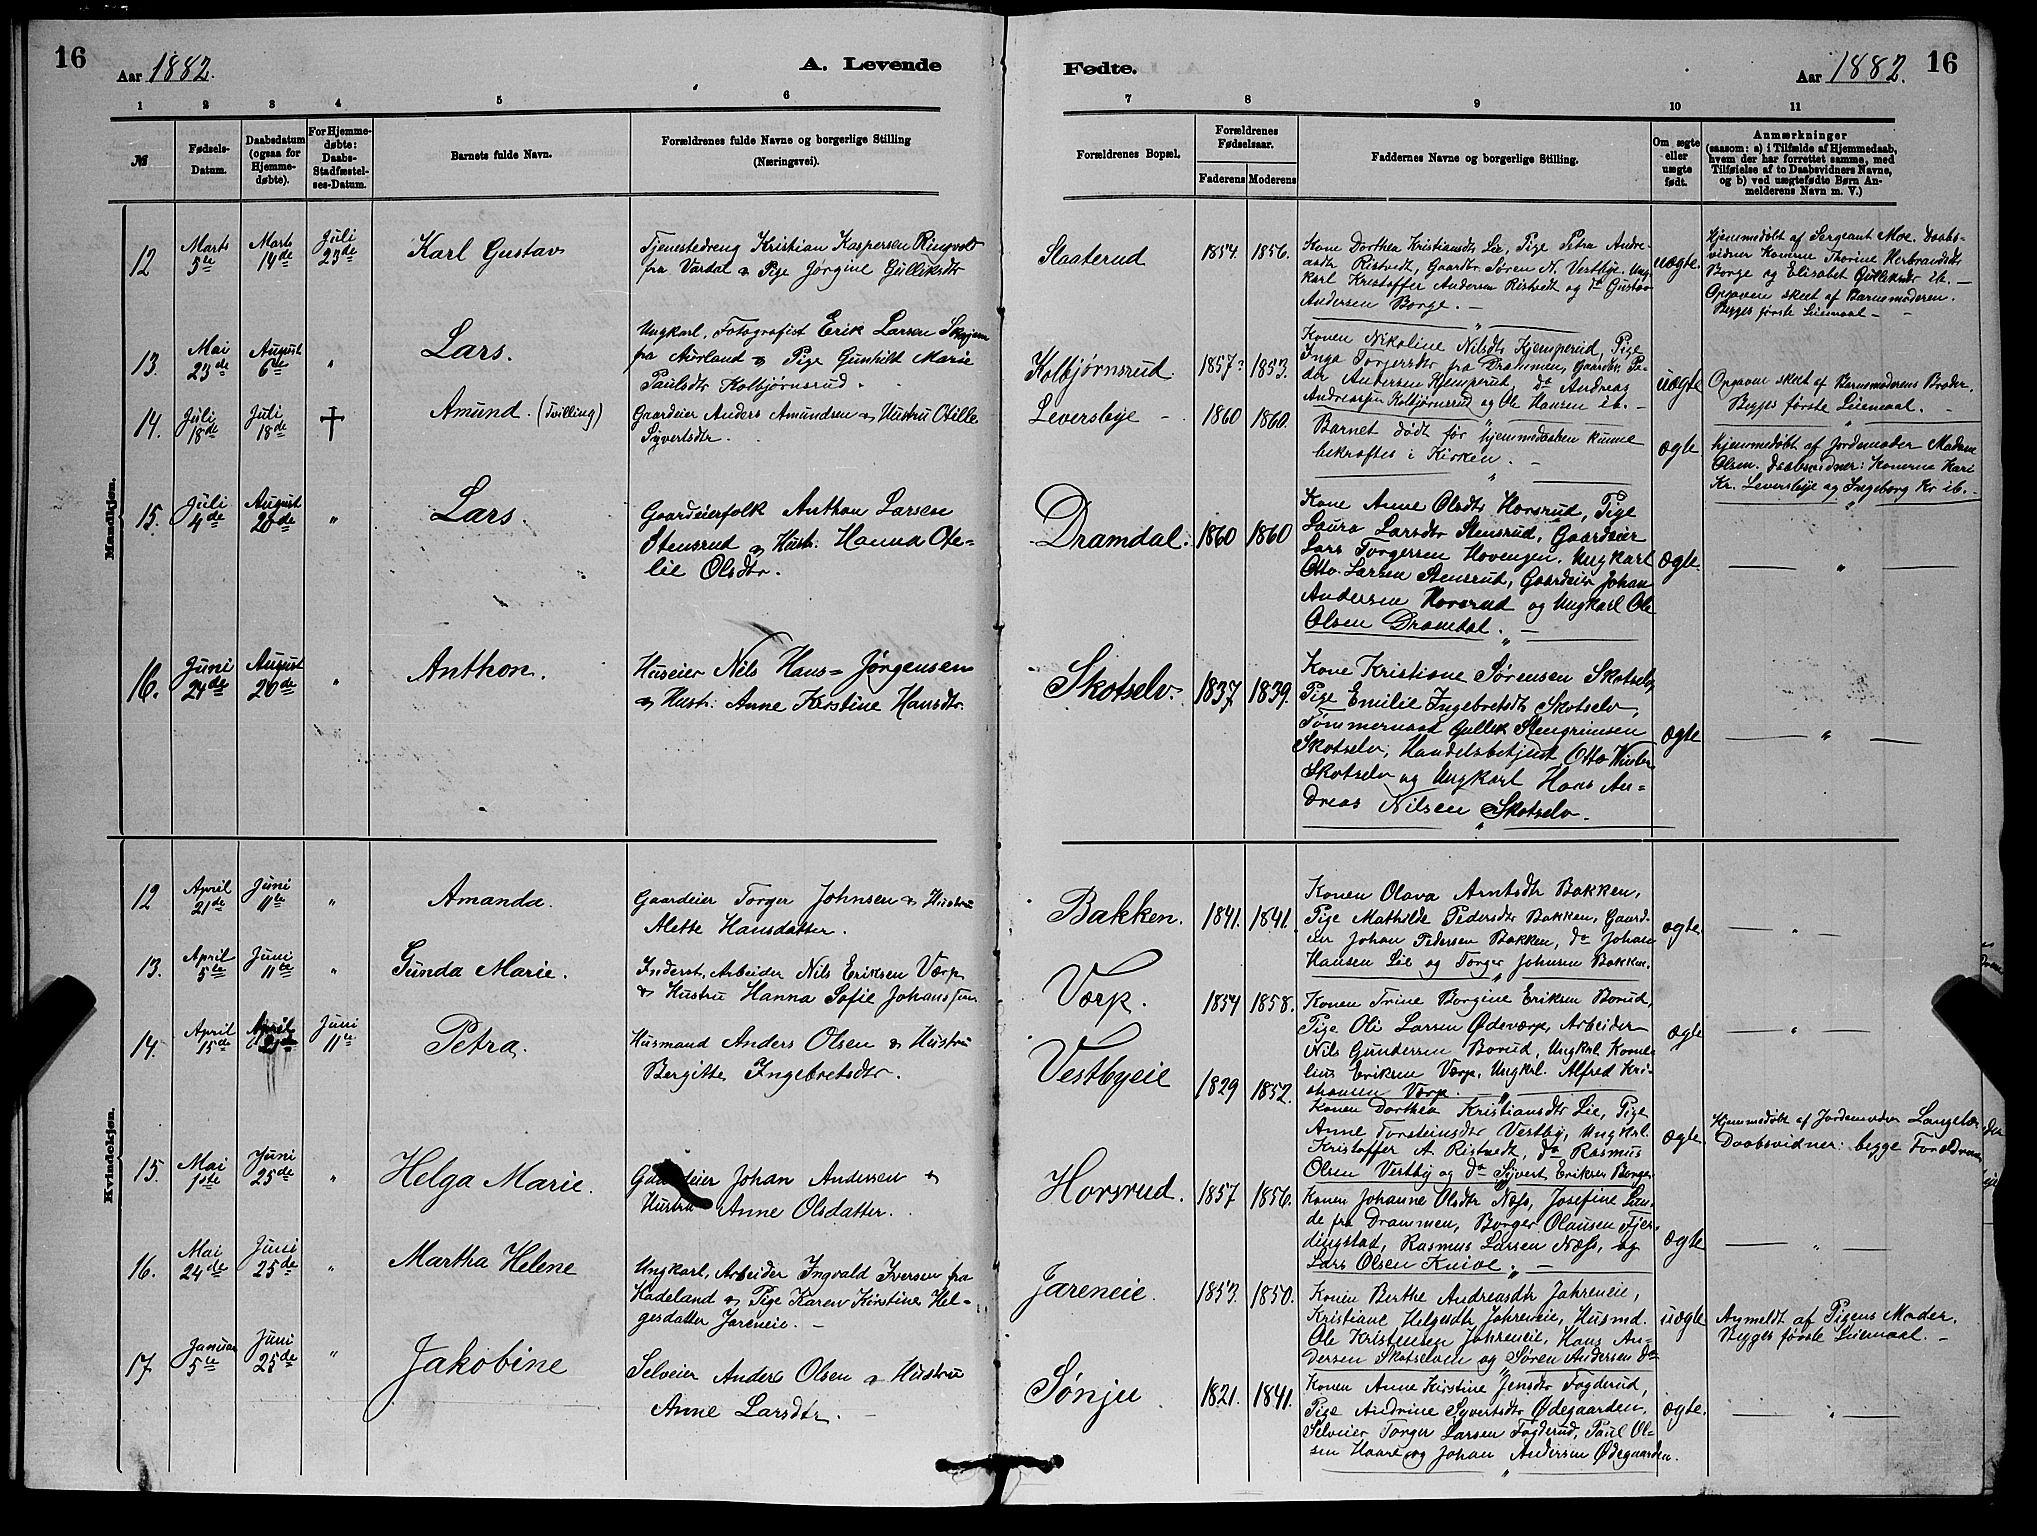 16
Aar 1882.
A. Levende
1 2 3 4 5 6
№
Fødsels-
Datum.
Daabsdatum
(ogsaa for
Hjemme-
døbte).
For Hjemme-
døbte:
Daabs-
Stadfæstel-
ses-Datum.
Barnets fulde Navn.
Forældrenes fulde Navne og borgerlige Stilling
(Næringsvei).
Mandkjøn.
12
Marts
5te
Marts
14de
Juli
23de
Karl Gustav
Tjenestedreng Kristian Kaspersen Ringvold
fra Vardal & Pige Jørgine Gulliksdtr
13.
Mai
23de
August
6de
"
Lars.
Ungkarl, Fotografist Erik Larsen Skajem
fra Aurland & Pige Gunhilt Marie
Paulsdtr Kolbjørnsrud.
14.
Juli
18de
Juli
18de
†
Amund. (Tvilling)
Gaardeier Anders Amundsen & Hustru Otille
Syvertsdtr.
15.
Juli
4de
August
20de
"
Lars
Gaardeierfolk Anthon Larsen
Stensrud & Hustr. Hanna Ote-
lie Olsdtr.
16.
Juni
24de
August
20de
"
Anthon.
Huseier Nils Hans= Jørgensen
& Hustr. Anne Kristine Hansdtr.
Kvindekjøn.
12
April
21de
Juni
11te
"
Amanda.
Gaardeier Torger Johnsen & Hustru
Alette Hansdatter.
13.
April
5te
Juni
11te
"
Gunda Marie.
Inderst, Arbeider Nils Eriksen Værp
& Hustru Hanna Sofie Johans
14.
April
15de
April
Juni
11te
Petra.
Husmand Anders Olsen & Hustru
Bergitte Ingebretsdtr.
15.
Mai
1ste
Juni
25de
"
Helga Marie.
Gaardeier Johan Andersen &
Hustru Anne Olsdatter.
16.
Mai
24de
Juni
25de
"
Martha Helene
Ungkarl, Arbeider Ingvald Iversen fra
Hadeland & Pige Karen Kirstine Hel-
gesdatter Jareneie. –
17.
Januar
5te
Juni
25de
"
Jakobine
Selveier Anders Olsen & Hustru
Anne Larsdtr. –
Fødte.
Aar 1882.
16
7 8 9 10 11
Forældrenes Bopæl.
Forældrenes
Fødselsaar.
Faderens Moderens
Faddernes Navne og borgerlige Stilling.
Om ægte
eller
uægte
født.
Anmærkninger
(saasom: a) i Tilfælde af Hjemmedaab,
hvem der har forrettet samme, med
Tilføielse af to Daabsvidners Navne,
og b) ved uægtefødte Børn An-
melderens Navn m. V.)
Slaaterud
1854. 1856.
Kone Dorthea Kristiansdtr Lie, Pige Petra Andre-
asdtr Ristvedt, Gaardbr. Søren N. Vestbye, Ung-
karl Kristoffer Andersen Ristvedt og do Gustav
Andersen Borge. –
uægte.
Hjemmedøbt af Sergeant Moe. Daabs-
vidner Konerne Thorine Herbrandsdtr
Borge og Elisabet Gulliksdtr ib. –
Opgaven skeet af Barnemoderen.
Begges første Leiemaal. –
Kolbjørnsrud.
1857. 1853.
Konen Nikoline Nilsdtr Hjemperud, Pige
Inga Torgersdtr fra Drammen, Gaardbr. Pe-
der Andersen Hjemperud, do Andreas
Andreassen Kolbjørnsrud og Ole Hansen ib. –
uægte
Opgaven skeet af Barnemoderens Broder.
Begges første Leiemaal. –
Leversbye –
1860 1860.
Barnet dødt før hjemmedaaben kunne
bekræftes i Kirken. –
ægte
Hjemmedøbt af Jordemoder Madam
Olsen. Daabsvidner: Konerne Kari
Kr. Leversbye og Ingeborg Kr ib. –
Dramdal.
1860 1860
Kone Anne Olsdtr Horsrud, Pige
Laura Larsdtr Stensrud, Gaardeier
Lars Torgersen Hovengen, Ungkarl
Otto Larsen Stensrud, Gaardeier Johan
Andersen Horsrud og Ungkarl Ole
Olsen Dramdal. –
ægte.
— " —
Skotselv.
1837 1839.
Kone Kristiane Sørensen Skotselv
Pige Emilie Ingebretsdtr Skotselv,
Tømmermand Gullik Stengrimsen
Skotselv, Handelsbetjent Otto Winter
Skotselv og Ungkarl Hans An=
dreas Nilsen Skotselv.
ægte
— " —
Bakken.
1841. 1841.
Konen Olava Arntsdtr Bakken,
Pige Mathilde Pedersdtr Bakken, Gaard-
eier Johan Pedersen Bakken, do Johan
Hansen Lie og Torger Johnsen Bakken.
ægte.
— " —
Værp.
1854 1858.
Konen Trine Borgine Eriksen Borud,
Pige Oli Larsen Ødeværp, Arbeider
Nils Gundersen Borud, Ungkrl. Korne-
lius Eriksen Værp, Ungkrl. Alfred Kri-
stiansen Værp.
ægte
— " —
Vestbyeie
1829 1852.
Konen Dorthea Kristiansdtr Lie, Pige
Anne Torsteinsdtr Vestby, Ungkarl.
Kristoffer A. Ristvedt, do Rasmus
Olsen Vestby og do Syvert Eriksen Borge.
ægte.
Hjemmedøbt af Jordemoder
Daabsvidner: begge Forældrene
Horsrud.
1857 1856.
Konen Johanne Olsdtr Næss, Josefine Lun-
de fra Drammen, Borger Olausen Fjer-
dingstad, Rasmus Larsen Næss, og
Lars Olsen Knive. –
ægte
— " —
Jareneie.
1853. 1850.
Konen Berthe Andreasdtr Jahreneie,
Kristiane Helgesdtr Jahreneie, Husmd.
Ole Kristensen Jahreneie, Hans An-
dersen Skotselven og Søren Andersen do
uægte
Anmeldt af Pigens Moder.
Begges første Leiemaal. –
Sønju
1821. 1841.
Konen Anne Kirstine Jensdtr Fogderud,
Pige Andrine Syvertsdtr Ødegaarden,
Selveier Torger Larsen Fogderud, Paul Ol-
sen Haare og Johan Andersen Ødegaarden.
ægte.
— " —